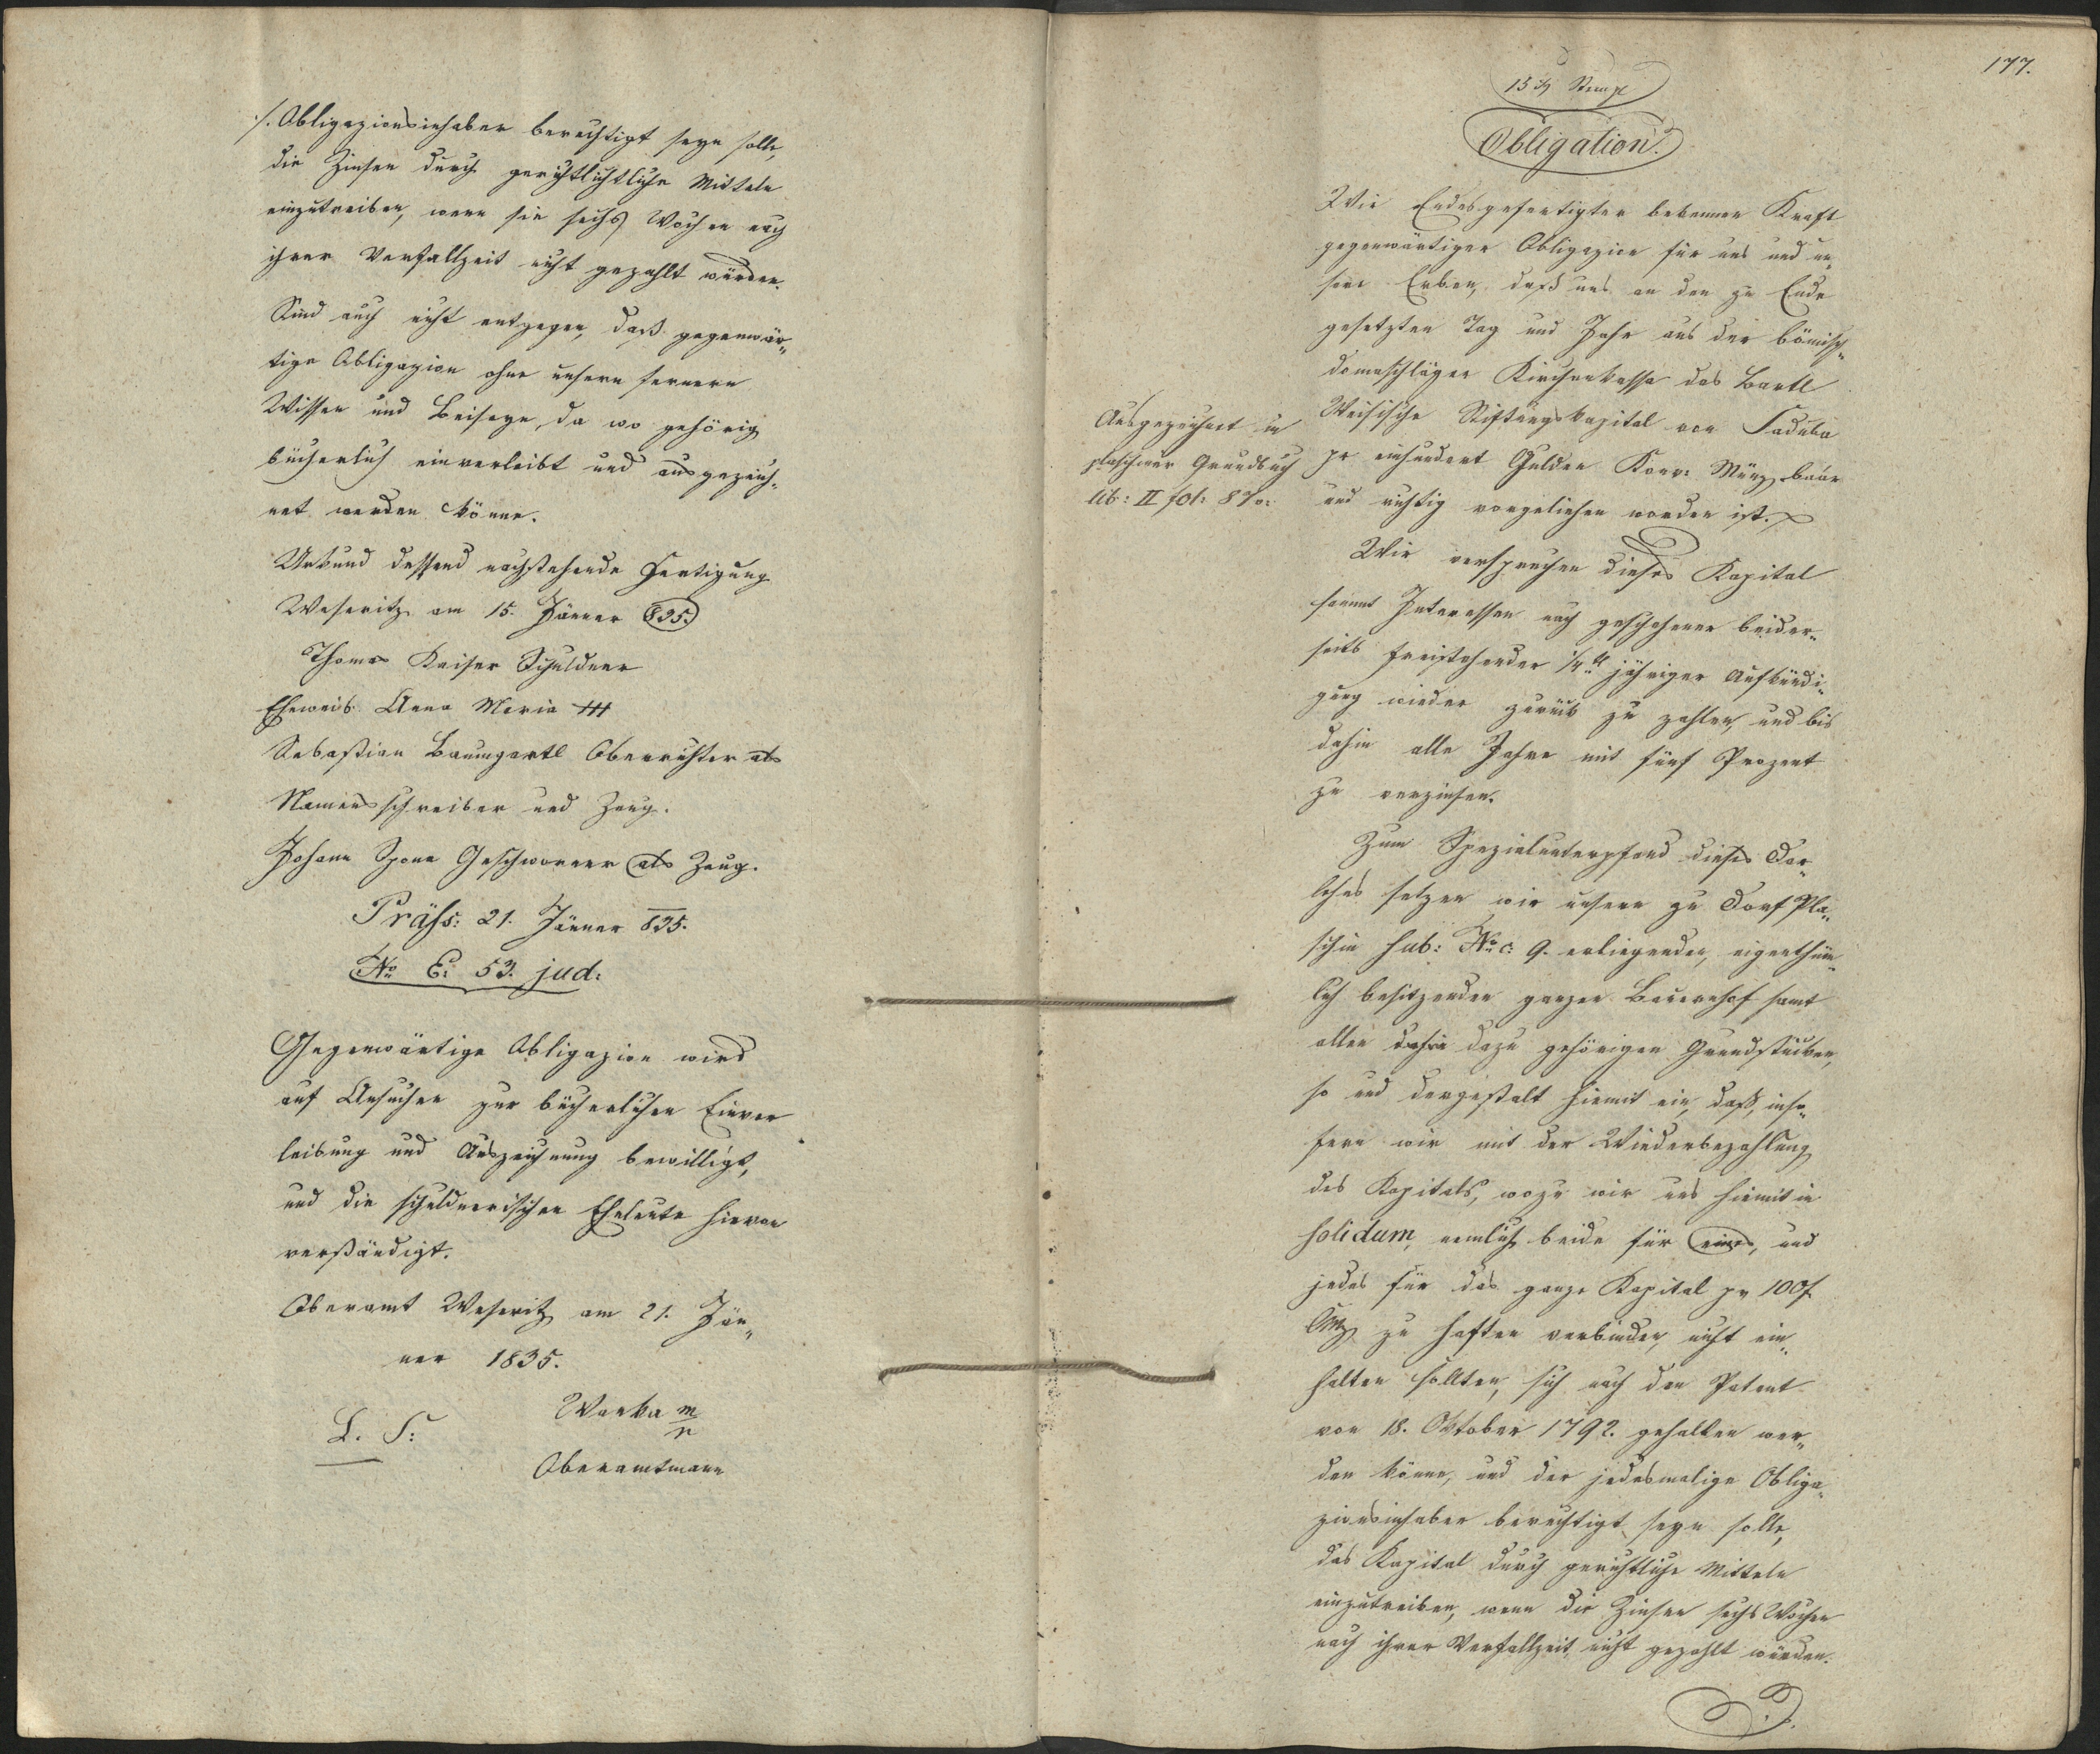 ./. Obligazionsinhaber berechtigt seyn solle,
die Zinsen durch gerichtlichtliche Mitteln
einzutreiben, wenn sie sechs Wochen nach
ihrer Verfallzeit nicht gezahlt würden.
Sind auch nicht entgegen, daß gegenwär„
tige Obligazion ohne unsern fernern
Wissen und Beiseyn, da wo gehörig
bücherlich einverleibt und ausgezeich„
net werden könne.
Urkund dessend nachstehende Fertigung
Weseritz am 15. Jänner 835.
Thomas Kaiser Schuldner
Eheweib Anna Maria +++
Sebastian Baumgartl Oberrichter als
Namensschreiber und Zeug.
Johann Spona Geschworner als Zeug.
Präss: 21. Jänner 835.
No E: 53. jud:
Gegenwärtige Obligazion wird
auf Ansuchen zur bücherlichen Einver
leibung und Auszeichnung bewilligt,
und die schuldnerischen Eheleute hievon
verständigt.
Oberamt Weseritz am 21. Jän„
ner 1835.
L. S:
Warka m/p
Oberamtmann
177.
15 xr Stempl
Obligation.
Wir Endesgefertigten bekennen Kraft
gegenwärtiger Obligazion für uns und un„
sere Erben, daß uns an den zu Ende
gesetzten Tag und Jahr aus der bömisch„
domaschläger Kirchenkassa das Bartl
Weisische Stiftungskapital von
pr einhundert Gulden Konv: Münz baar
und richtig vorgeliehen worden ist.
Ausgezeichnet im
plaschiner Grundbuch
lib: II fol: 870:
Wir versprechen dieses Kapital
sammt Interessen nach geschehener beider„
seits freistehender 1/4tl jähriger Aufkündi„
gung wieder zurück zu zahlen, und bis
dahin alle Jahre mit fünf Prozent
zu verzinsen.
Zum Spezialunterpfand dieses Dar„
lehns setzen wir unsern zu Dorf Pla„
schin sub: No c: 9. erliegenden, eigenthüm„
lich besitzenden ganzen Bauernhof samt
allen dahin dazu gehörigen Grundstücken,
so und dergestalt hiemit ein, daß, inso„
fern wir mit der Wiederbezahlung
des Kapitals, wozu wir uns hiemit in
solidum, nemlich beide für eines, und
jedes für das ganze Kapital pr 100f
CMz zu haften verbinden, nicht ein„
halten sollten, sich nach den Patent
von 18. Oktober 1792. gehalten wer„
den könne, und der jedesmalige Obliga„
zionsinhaber berechtigt seyn solle,
das Kapital durch gerichtliche Mitteln
einzutreiben, wenn die Zinsen sechs Wochen
nach ihrer Verfallzeit nicht gezahlt würden.